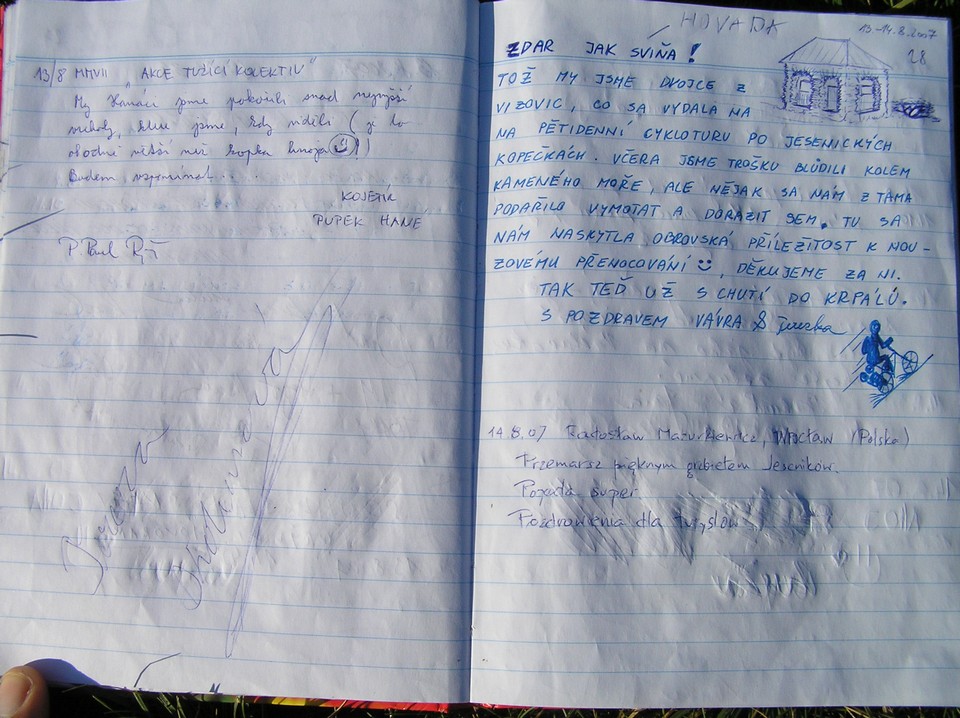 13/8 MMVII „AKCE TUŽÍCÍ KOLEKTIV"
My Hanáci jsme pokořili snad nejvyšší
, které jsme, kdy viděli ( je to
větší než kopka hnoja !)
Budem vzpomínat...
KOJETÍN
PUPEK HANE
P. Pavel
HOVADA
13-14.8.2007
28
ZDAR JAK SVIŇA!
TOŽ MY JSME DVOJCE Z
VIZOVIC, CO SA VYDALA NA
NA PĚTIDENNÍ CYKLOTURU PO JESENICKÝCH
KOPEČKÁCH. VČERA JSME TROŠKU BLÚDILI KOLEM
KAMENÉHO MOŘE, ALE NĚJAK SA NÁM Z TAMA
PODAŘILO VYMOTAT A DORAZIT SEM. TU SA
NÁM NASKYTLA OBROVSKÁ PŘÍLEŽITOST K NOU-
ZOVÉMU PŘENOCOVÁNÍ, DĚKUJEME ZA NI.
TAK TEĎ UŽ S CHUTÍ DO KRPÁLŮ.
S POZDRAVEM VÁVRA & Terezka
14.8.07 Radosław Mazurkiewicz, Wrocław (Polska)
Przemarsz pięknym grzbietem Jeseników.
Pogoda super.
Pozdrowienia dla turystów